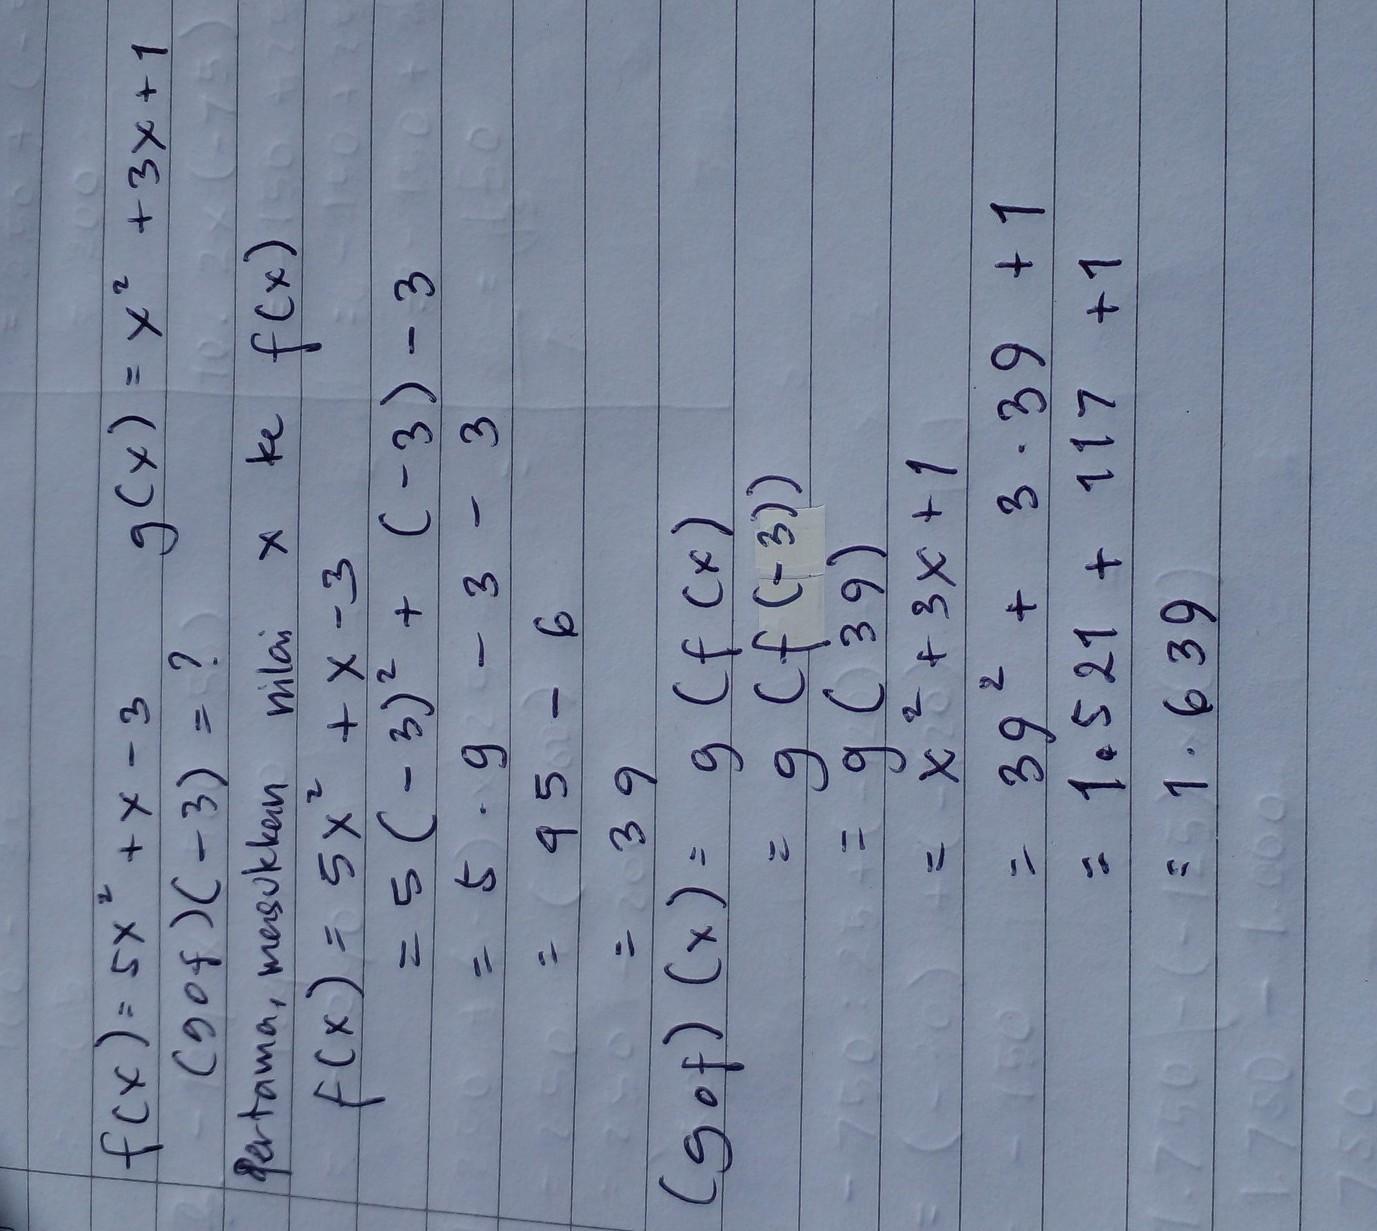 f(x) = 5x² + x - 3 g(x) = x² + 3x + 1
(gof)(-3) = ?
Pertama, masukkan nilai x ke f(x)
f(x) = 5x² + x - 3
= 5(-3)² + (-3) - 3
= 5 . 9 - 3 - 3
= 45 - 6
= 39
(gof)(x) = g(f(x)
= g(f(-3))
= g(39)
= x² + 3x + 1
= 39² + 3 . 39 + 1
= 1.521 + 117 + 1
= 1.639